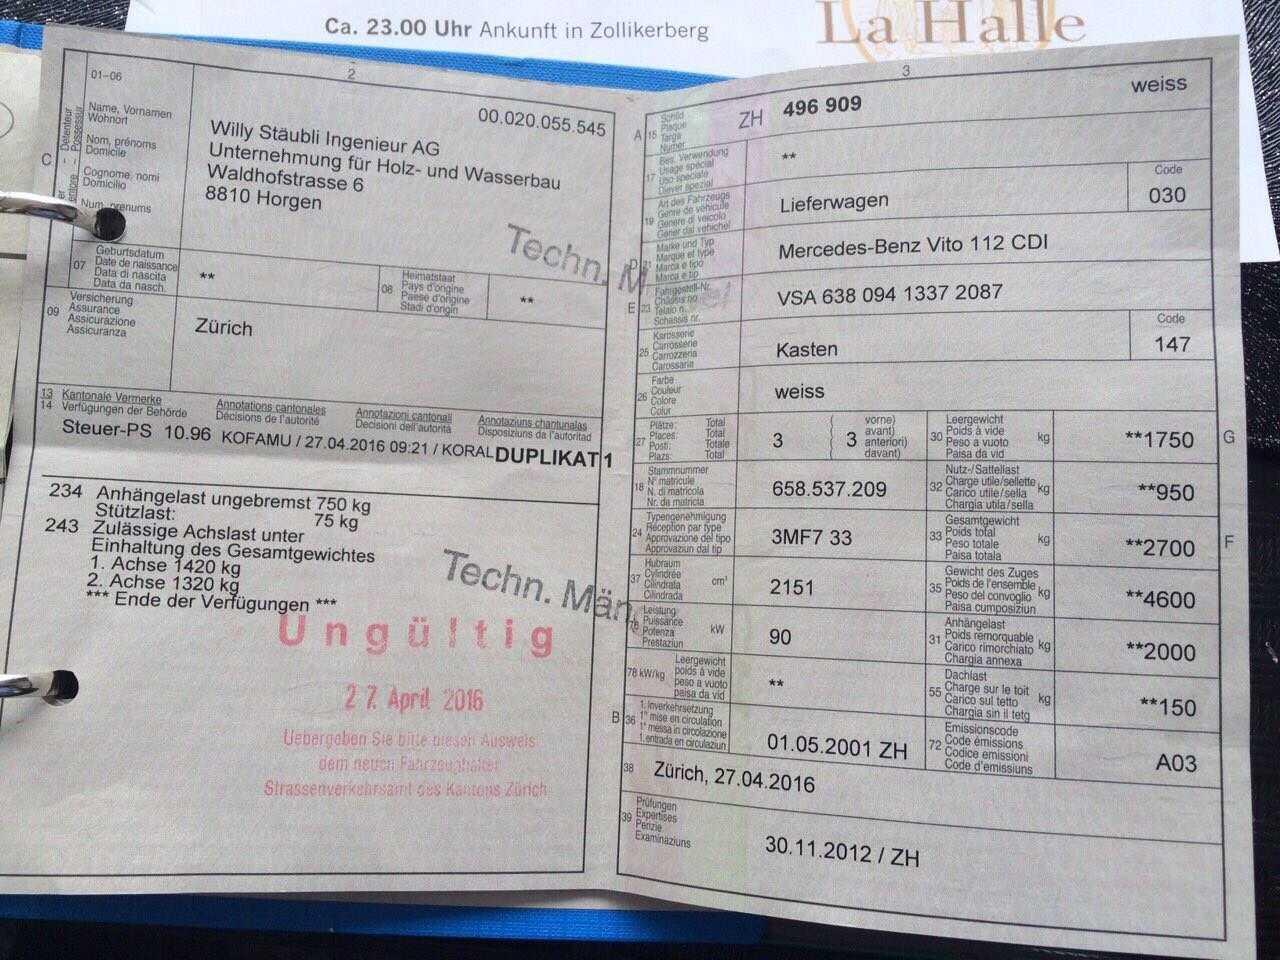 Ca. 23.00 Uhr Ankunft in Zollikerberg
La Halle
2
01-06
Name, Vornamen
Wohnort
Nom, prénoms
Domicile
Cognome, nomi
Domicilio
Detenteur
Possessur
C
00.020.055.545
Willy Stäubli Ingenieur AG
Unternehmung für Holz- und Wasserbau
Waldhofstrasse 6
8810 Horgen
Techn. M
07
Geburtsdatum
Date de naissance
Data di nascita
Data da nasch.
**
08
Heimatstaat
Pays d'origine
Paese d'origine
Stadi d'origin
**
09
Versicherung
Assurance
Assicurazione
Assicuranza
Zürich
13 Kantonale Vermerke
14 Verfügungen der Behörde
Annotations cantonales
Décisions de l'autorité
Annotazioni cantonali
Decisioni dell'autorità
Annotaziuns chantunalas
Disposiziuns da l'autoritad
Steuer-PS 10.96 KOFAMU / 27.04.2016 09:21 / KORAL DUPLIKAT 1
234 Anhängelast ungebremst 750 kg
Stützlast: 75 kg
243 Zulässige Achslast unter
Einhaltung des Gesamtgewichtes
1. Achse 1420 kg
2. Achse 1320 kg
*** Ende der Verfügungen ***
Techn. Män
Ungültig
27. April 2016
Uebergeben Sie bitte diesen Ausweis
dem neuen Fahrzeughalter
Strassenverkehrsamt des Kantons Zürich
3
weiss
A 15
Schild
Plaque
Targa
Numer
ZH 496 909
17
Bes. Verwendung
Usage spécial
Uso speciale
Diever spezial
**
19
Art des Fahrzeugs
Genre de véhicule
Genere di veicolo
Gener dal vehichel
Lieferwagen
Code
030
D 21
Marke und Typ
Marque et type
Marca e tipo
Marca e tip
Mercedes-Benz Vito 112 CDI
E 23
Fahrgestell-Nr.
Châssis no
Telaio n.
Schassis nr.
VSA 638 094 1337 2087
25
Karosserie
Carrosserie
Carrozzeria
Carossaria
Kasten
Code
147
26
Farbe
Couleur
Colore
Colur
weiss
27
Plätze: Total
Places: Total
Posti: Totale
Plazs: Total
3
( 3
vorne)
avant)
anteriori)
davant)
30
Leergewicht
Poids à vide
Peso a vuoto
Paisa da vid
kg
**1750
G
18
Stammnummer
N° matricule
N. di matricola
Nr. da matricla
658.537.209
32
Nutz-/Sattellast
Charge utile/sellette
Carico utile/sella
Chargia utila/sella
kg
**950
24
Typengenehmigung
Réception par type
Approvazione del tipo
Approvaziun dal tip
3MF7 33
33
Gesamtgewicht
Poids total
Peso totale
Paisa totala
kg
**2700
F
37
Hubraum
Cylindrée
Cilindrata
Cilindrada
cm³
2151
35
Gewicht des Zuges
Poids de l'ensemble
Peso del convoglio
Paisa cumposiziun
kg
**4600
76
Leistung
Puissance
Potenza
Prestaziun
kW
90
31
Anhängelast
Poids remorquable
Carico rimorchiato
Chargia annexa
kg
**2000
78 kW/kg
Leergewicht
poids à vide
peso a vuoto
paisa da vid
**
55
Dachlast
Charge sur le toit
Carico sul tetto
Chargia sin il tetg
kg
**150
B 36
1. Inverkehrsetzung
1re mise en circulation
1a messa in circolazione
1. entrada en circulaziun
01.05.2001 ZH
72
Emissionscode
Code émissions
Codice emissioni
Code d'emissiuns
A03
38
Zürich, 27.04.2016
39
Prüfungen
Expertises
Perizie
Examinaziuns
30.11.2012 / ZH